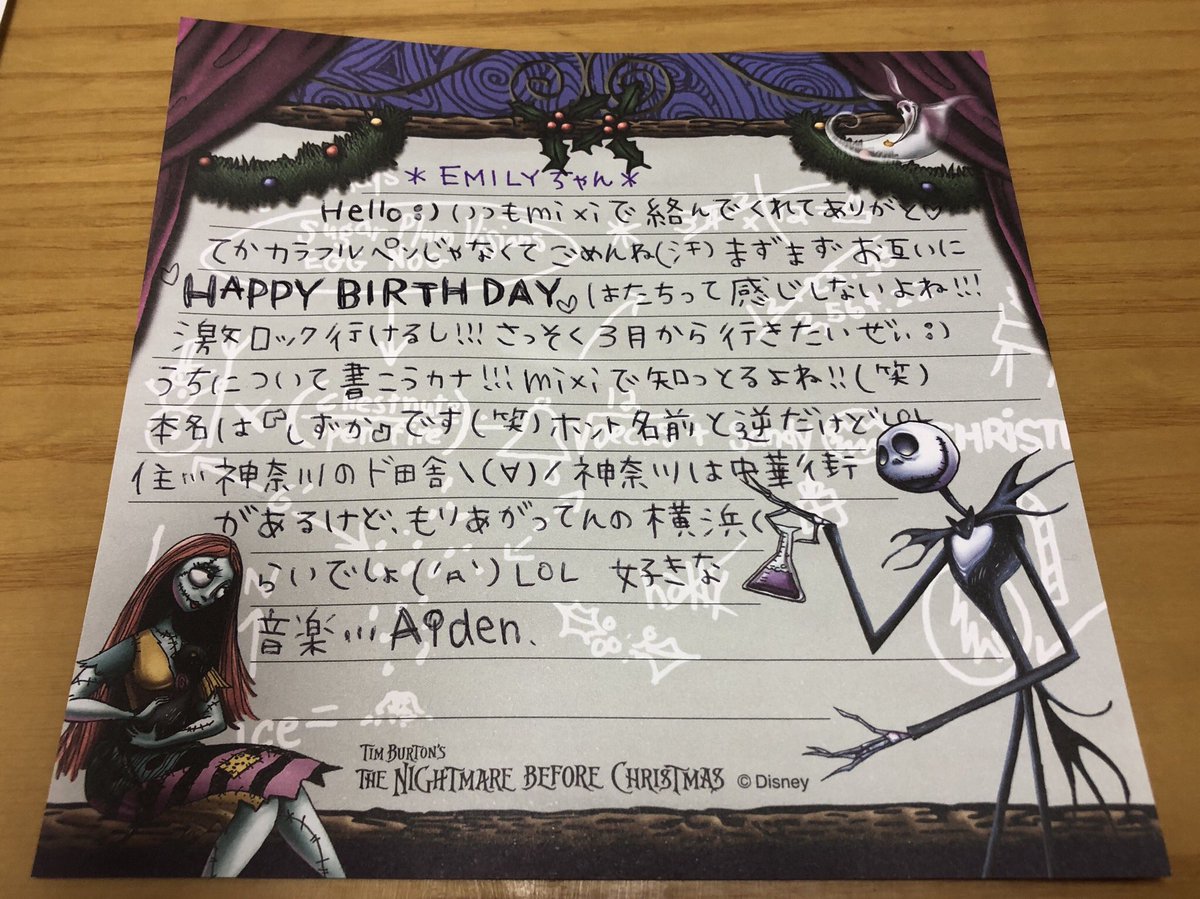 ＊EMILYちゃん＊
Hello :) いつもmixiで絡んでくれてありがと♡
てかカラフルペンじゃなくてごめんね(汗) まずまずお互いに
♡HAPPY BIRTHDAY♡はたちって感じしないよね!!!
激ロック行けるし!!! さっそく3月から行きたいぜぃ :)
うちについて書こうカナ!!! mixiで知っとるよね!!(笑)
本名は『しずか』です(笑) ホント名前と逆だけどLOL
住... 神奈川のド田舎\(∀)/ 神奈川は中華街
があるけど、もりあがってんの横浜(
らいでしょ('A`) LOL 好きな
音楽... Aiden、
EGG NOG
CHRISTM
ice =
TIM BURTON'S
THE NIGHTMARE BEFORE CHRISTMAS ©Disney